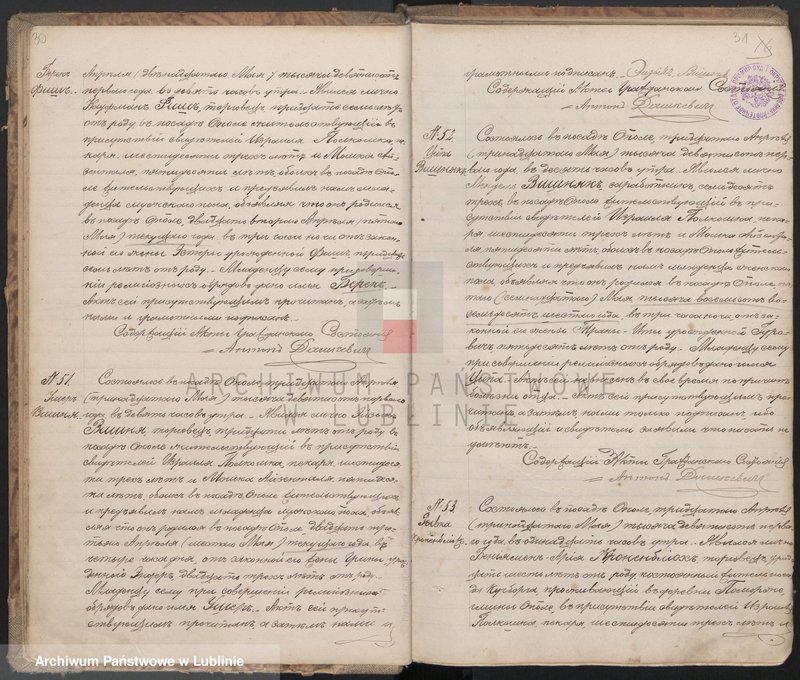 30
Берекъ
Фишъ.
Апрѣля (двѣнадцатаго Мая) тысяча девятьсотъ
перваго года, въ девять часовъ утра. Явился лично
Кауфманъ Фишъ, торговецъ, тридцати семи лѣтъ
отъ роду, въ посадѣ Ополе жительствующій, въ
присутствіи свидѣтелей Израиля Полкошка, пе-
каря, шестидесяти трехъ лѣтъ и Мошка Ай-
зентала, пятидесяти лѣтъ, обоихъ въ посадѣ Опо-
ле жительствующихъ и предъявилъ намъ мла-
денца мужескаго пола, объявляя что онъ родился
въ посадѣ Ополе, двадцать втораго Апрѣля (пятаго
Мая) текущаго года, въ три часа ночи отъ закон-
ной его жены Эстеры урожденной Фишъ, тридцати
семи лѣтъ отъ роду. Младенцу сему при соверше-
ніи религіозныхъ обрядовъ дано имя Берекъ.
Актъ сей присутствующимъ прочитанъ, а затѣмъ
нами и грамотными подписанъ.
Содержащій Акты Гражданскаго Состоянія
Антонъ Дашкевичъ
N 51.
Вишня.
Состоялось въ посадѣ Ополе, тридцатаго Апрѣля
(тринадцатаго Мая) тысяча девятьсотъ перваго
года, въ девять часовъ утра. Явился лично
Вишня, торговецъ, тридцати лѣтъ отъ роду, въ
посадѣ Ополе жительствующій, въ присутствіи
свидѣтелей Израиля Полкошка, пекаря, шестидеся-
ти трехъ лѣтъ и Мошка Айзентала, пятидеся-
ти лѣтъ, обоихъ въ посадѣ Ополе жительствующихъ
и предъявилъ намъ младенца мужескаго пола, объяв-
ляя что онъ родился въ посадѣ Ополе, двадцать тре-
тьяго Апрѣля (шестаго Мая) текущаго года, въ
четыре часа дня, отъ законной его жены урож-
денной двадцати трехъ лѣтъ отъ роду.
Младенцу сему при совершеніи религіозныхъ
обрядовъ дано имя Актъ сей присут-
ствующимъ прочитанъ, а затѣмъ нами и
31
грамотными подписанъ.
Содержащій Акты Гражданскаго Состоянія
Антонъ Дашкевичъ
N 52.
Цута
Вишнякъ
Состоялось въ посадѣ Ополе, тридцатаго Апрѣля
(тринадцатаго Мая) тысяча девятьсотъ пер-
ваго года, въ десять часовъ утра. Явился лично
Мендель Вишнякъ, заработникъ, семидесяти
трехъ, въ посадѣ Ополе жительствующій, въ при-
сутствіи свидѣтелей Израиля Полкошка, пека-
ря, шестидесяти трехъ лѣтъ и Мошка Айзента-
ла, пятидесяти лѣтъ, обоихъ въ посадѣ Ополе житель-
ствующихъ и предъявилъ намъ младенца женскаго
пола, объявляя что онъ родился въ посадѣ Ополе, пя-
таго (семнадцатаго) Мая тысяча восемьсотъ во-
семьдесятъ шестаго года, въ три часа ночи, отъ за-
конной его жены урожденной
пятидесяти лѣтъ отъ роду. Младенцу сему
при совершеніи религіозныхъ обрядовъ дано имя
Цута. Актъ сей невнесенъ въ свое время по причинѣ
болѣзни отца. Актъ сей присутствующимъ про-
читанъ, а затѣмъ нами только подписанъ, ибо
объявляющій и свидѣтели заявили что писать не
умѣютъ.
Содержащій Акты Гражданскаго Состоянія
Антонъ Дашкевичъ
N 53.
Рывка
Состоялось въ посадѣ Ополе, тридцатаго Апрѣля
(тринадцатаго Мая) тысяча девятьсотъ перва-
го года, въ одинадцать часовъ утра. Явился лично
торговецъ, трид-
цати шести лѣтъ отъ роду, постоянный житель поса-
да проживающій въ деревнѣ
гмины Ополе, въ присутствіи свидѣтелей Израиля
Полкошка, пекаря, шестидесяти трехъ лѣтъ и
ARCHIWUM PAŃSTWOWE
W LUBLINIE
Archiwum Państwowe w Lublinie